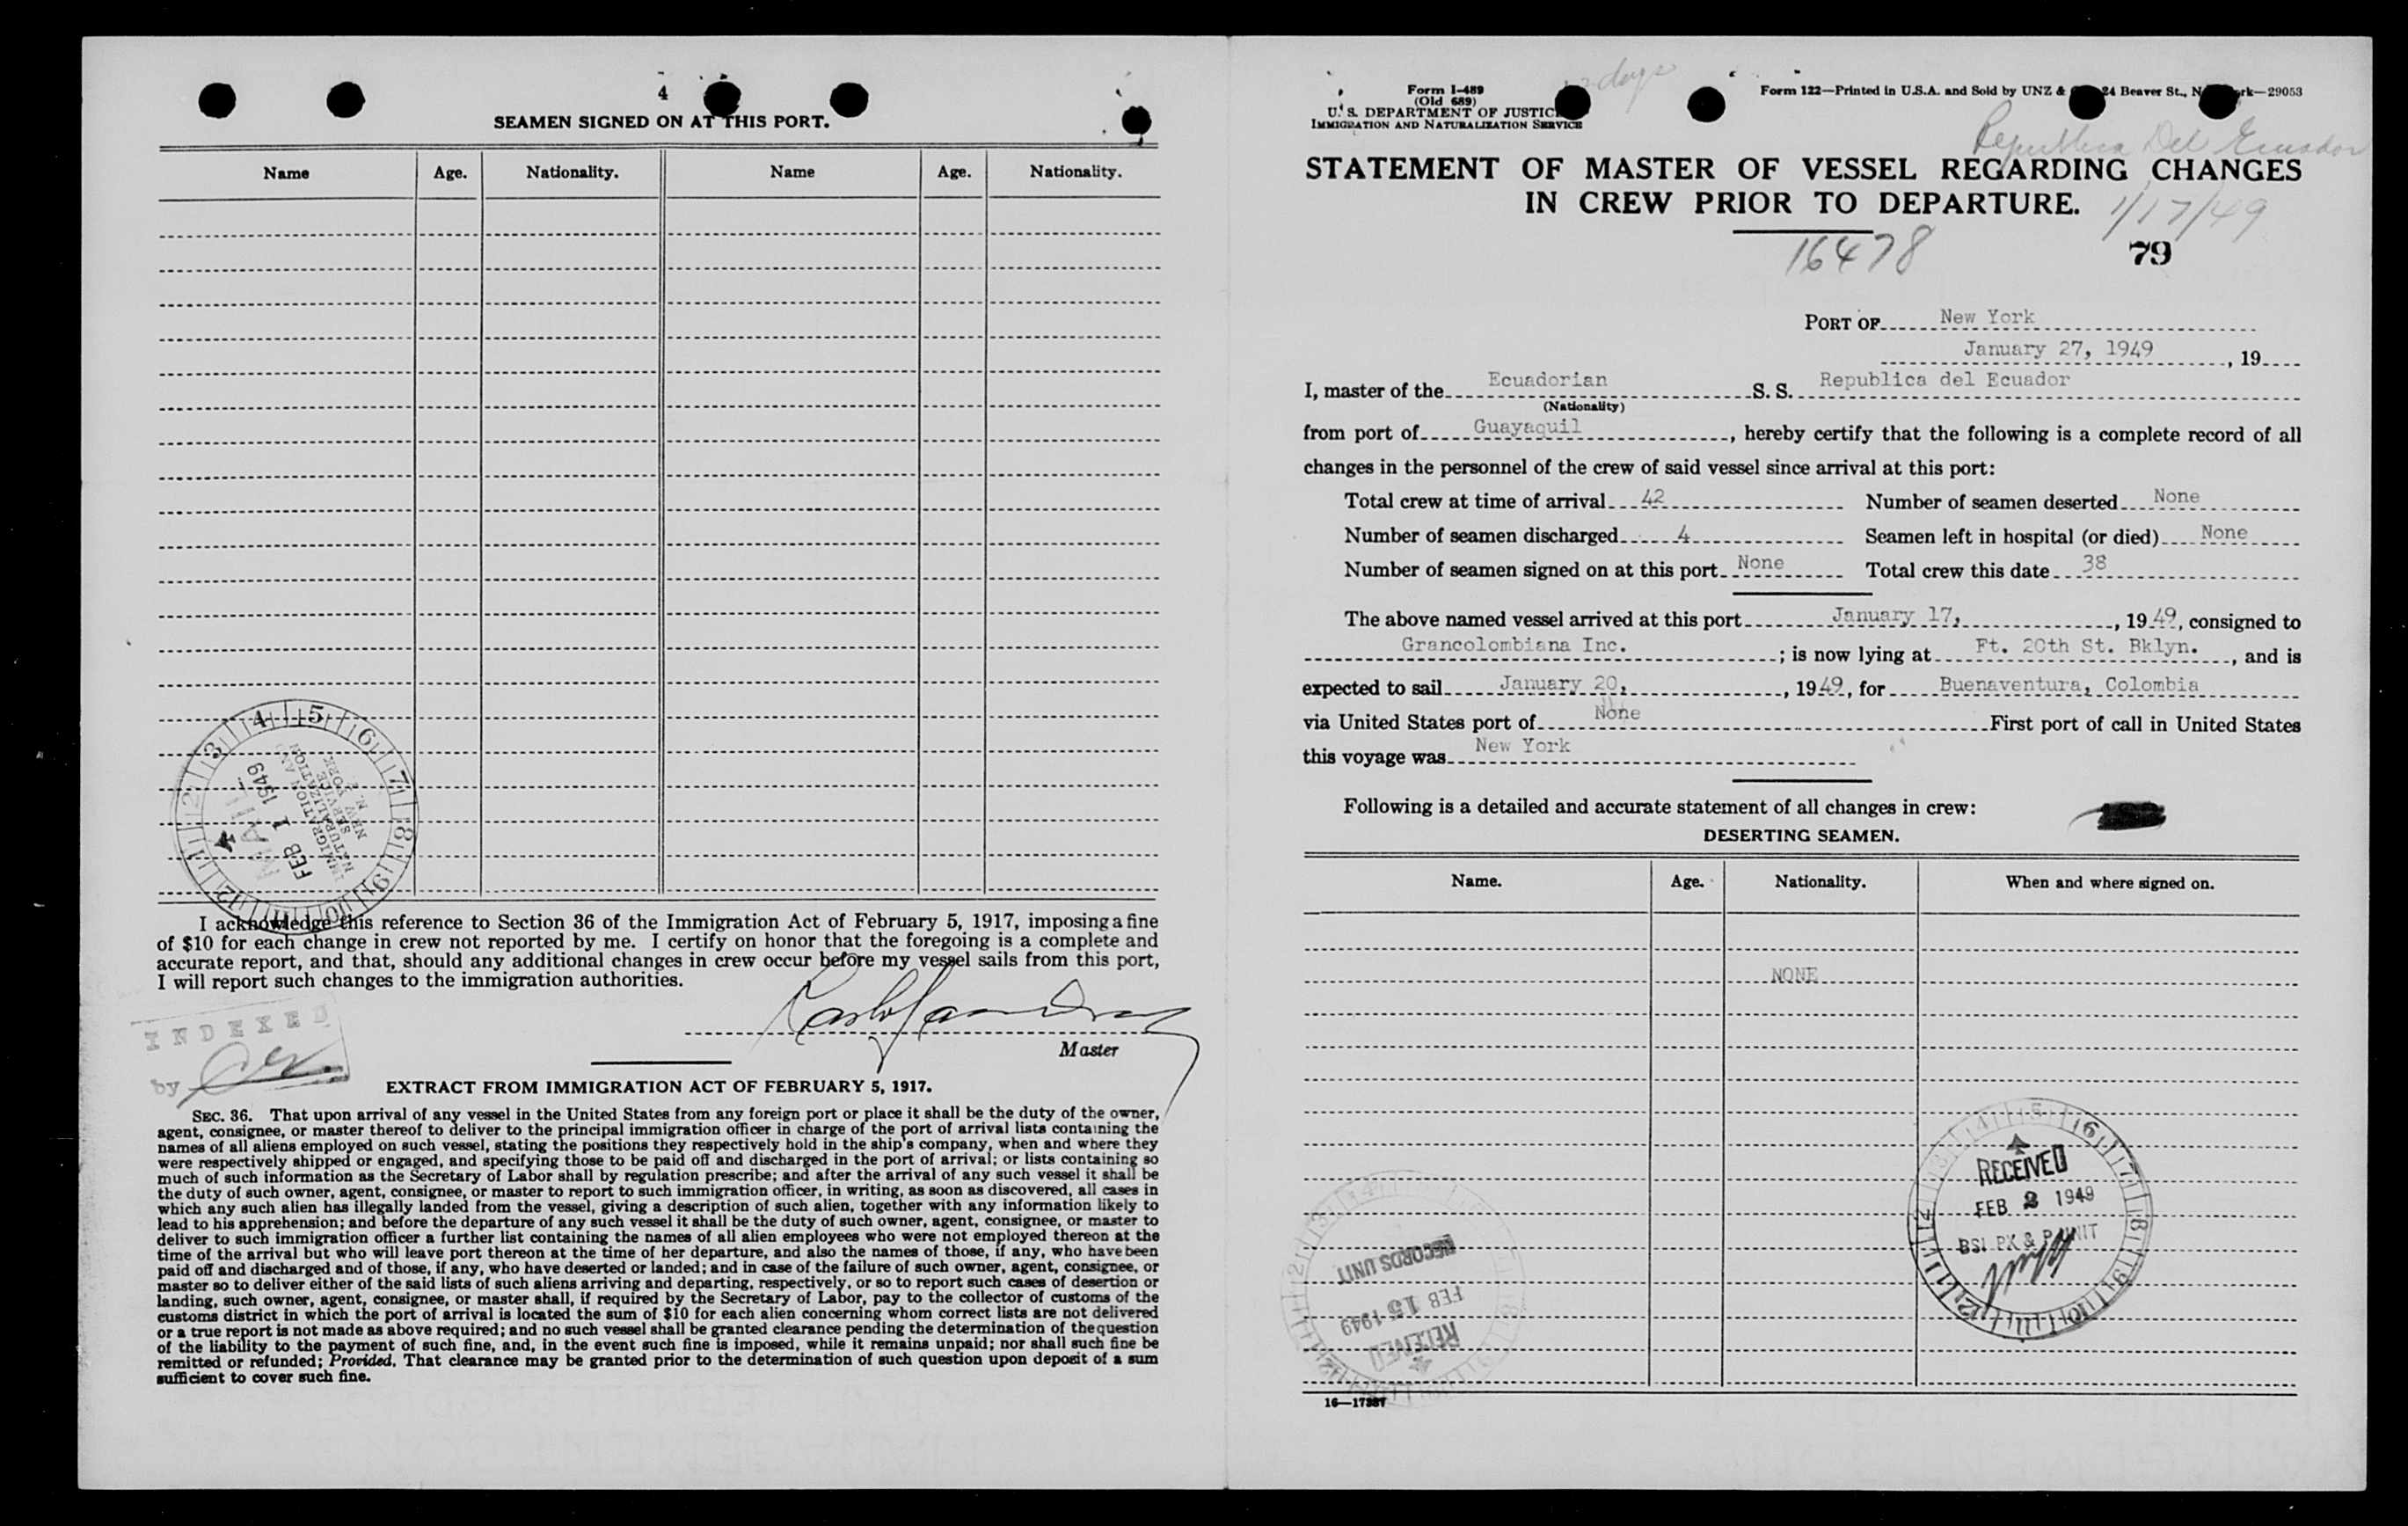 4
SEAMEN SIGNED ON AT THIS PORT.
Name Age. Nationality. Name Age. Nationality.
4 5 6 7 8 9 10 11 12 1 2 3
MAIL
FEB 1 1949
IMMIGRATION AN
NATURALIZATION
SERVICE
NEW YORK
N.
I acknowledge this reference to Section 36 of the Immigration Act of February 5, 1917, imposing a fine
of $10 for each change in crew not reported by me. I certify on honor that the foregoing is a complete and
accurate report, and that, should any additional changes in crew occur before my vessel sails from this port,
I will report such changes to the immigration authorities.
Master
INDEXED
by
EXTRACT FROM IMMIGRATION ACT OF FEBRUARY 5, 1917.
SEC. 36. That upon arrival of any vessel in the United States from any foreign port or place it shall be the duty of the owner,
agent, consignee, or master thereof to deliver to the principal immigration officer in charge of the port of arrival lists containing the
names of all aliens employed on such vessel, stating the positions they respectively hold in the ship's company, when and where they
were respectively shipped or engaged, and specifying those to be paid off and discharged in the port of arrival; or lists containing so
much of such information as the Secretary of Labor shall by regulation prescribe; and after the arrival of any such vessel it shall be
the duty of such owner, agent, consignee, or master to report to such immigration officer, in writing, as soon as discovered, all cases in
which any such alien has illegally landed from the vessel, giving a description of such alien, together with any information likely to
lead to his apprehension; and before the departure of any such vessel it shall be the duty of such owner, agent, consignee, or master to
deliver to such immigration officer a further list containing the names of all alien employees who were not employed thereon at the
time of the arrival but who will leave port thereon at the time of her departure, and also the names of those, if any, who have been
paid off and discharged and of those, if any, who have deserted or landed; and in case of the failure of such owner, agent, consignee, or
master so to deliver either of the said lists of such aliens arriving and departing, respectively, or so to report such cases of desertion or
landing, such owner, agent, consignee, or master shall, if required by the Secretary of Labor, pay to the collector of customs of the
customs district in which the port of arrival is located the sum of $10 for each alien concerning whom correct lists are not delivered
or a true report is not made as above required; and no such vessel shall be granted clearance pending the determination of the question
of the liability to the payment of such fine, and, in the event such fine is imposed, while it remains unpaid; nor shall such fine be
remitted or refunded; Provided, That clearance may be granted prior to the determination of such question upon deposit of a sum
sufficient to cover such fine.
Form I-489
(Old 689)
U. S. DEPARTMENT OF JUSTICE
IMMIGRATION AND NATURALIZATION SERVICE
days
Form 122—Printed in U.S.A. and Sold by UNZ & 24 Beaver St., N rk—29053
Republica Del Ecuador
STATEMENT OF MASTER OF VESSEL REGARDING CHANGES
IN CREW PRIOR TO DEPARTURE.
1/17/49
16478
79
PORT OF New York
January 27, 1949, 19
I, master of the Ecuadorian S. S. Republica del Ecuador
(Nationality)
from port of Guayaquil, hereby certify that the following is a complete record of all
changes in the personnel of the crew of said vessel since arrival at this port:
Total crew at time of arrival 42 Number of seamen deserted None
Number of seamen discharged 4 Seamen left in hospital (or died) None
Number of seamen signed on at this port None Total crew this date 38
The above named vessel arrived at this port January 17, , 1949, consigned to
Grancolombiana Inc. ; is now lying at Ft. 20th St. Bklyn. , and is
expected to sail January 20, , 1949, for Buenaventura, Colombia
via United States port of None First port of call in United States
this voyage was New York
Following is a detailed and accurate statement of all changes in crew:
DESERTING SEAMEN.
Name. Age. Nationality. When and where signed on.
NONE
RECEIVED
FEB 2 1949
BSI PX & P UNIT
RECORDS UNIT
FEB 15 1949
RECEIVED
16—17387